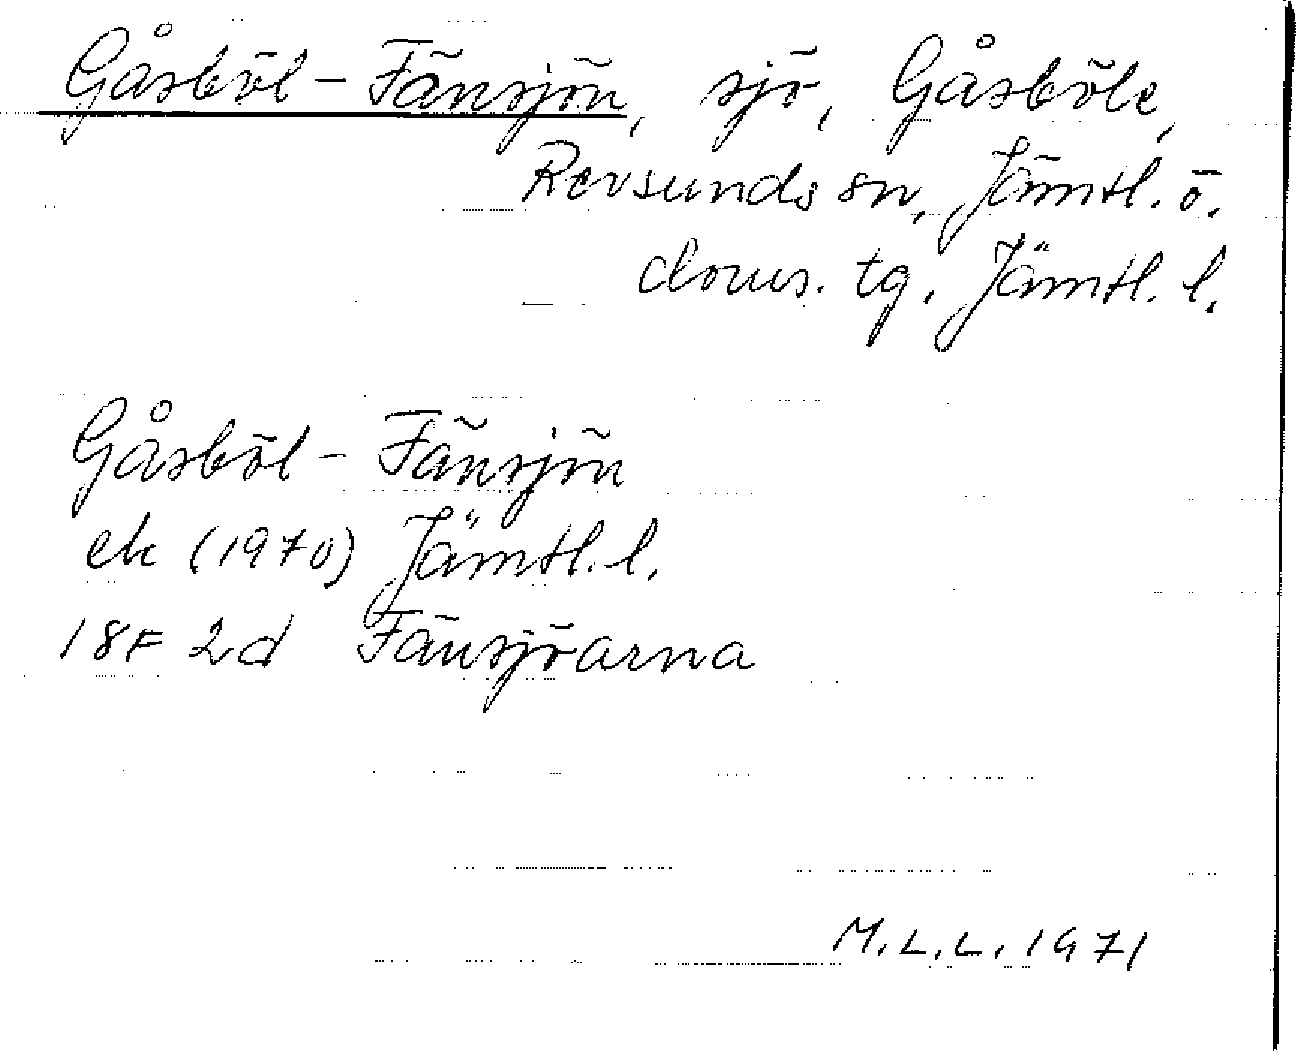 Gåsböl-Fänsjön, sjö, Gåsböle,
Revsunds sn, Jämtl. ö.
doms. tg, Jämtl. l.
Gåsböl-Fänsjön
ek (1970) Jämtl. l.
18F 2d Fänsjöarna
M.L.L. 1971